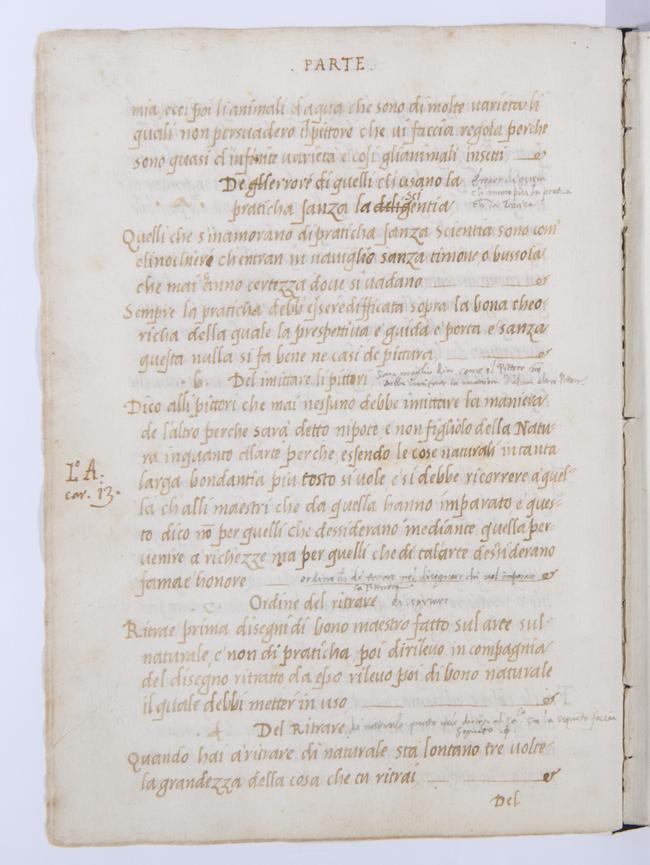 . PARTE .
mia, ecci poi li animali d'aqua che sono di molte varieta li
quali non persuadero il pittore che vi faccia regola perche
sono quasi d'infinite varieta e cosi gli animali insetti
De gll errore di quelli ch usano la
praticha sanza la deligentia
Quelli che s'inamorano di praticha sanza scientia sono com'
che mai anno certezza dove si vadano
Sempre la praticha debb' essere edifficata sopra la bona theo=
richa della quale la prespettiva e guida e porta e sanza
questa nulla si fa bene ne casi de pittura
. b. Del imittare li pittori
Dico alli pittori che mai nessuno debbe imittare la maniera
de l'altro perche sara detto nipote e non figliolo della Natu=
ra inquanto all'arte perche essendo le cose naturali in tanta
larga bondantia piu tosto si vole e si debbe ricorrere a quel=
Lo. A.
car. 13.
la ch alli maestri che da quella hanno imparato e ques=
to dico no per quelli che dessiderano mediante quella per
venire a richezze ma per quelli che di tal arte dessiderano
fama e honore
. C. Ordine del ritrare
Ritrae prima disegni di bono maestro fatto sul arte sul
naturale e non di praticha poi di rilievo in compagnia
del disegno ritratto da esso rilevo poi di bono naturale
il quale debbi metter in uso
d Del Ritrare
Quando hai a ritrare di naturale sta lontano tre volte
la grandezza della cosa che tu ritrai
Del